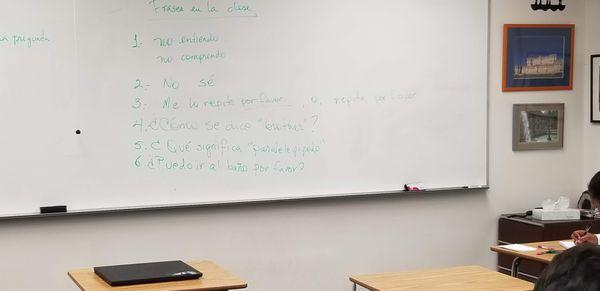 a pregunta
Frases en la clase
1.- no entiendo
no comprendo
2.- No sé
3.- Me lo repite por favor, o, repita por favor
4. ¿Cómo se dice "brother"?
5. ¿Qué significa "paralelepípedo"
6 ¿Puedo ir al baño por favor?